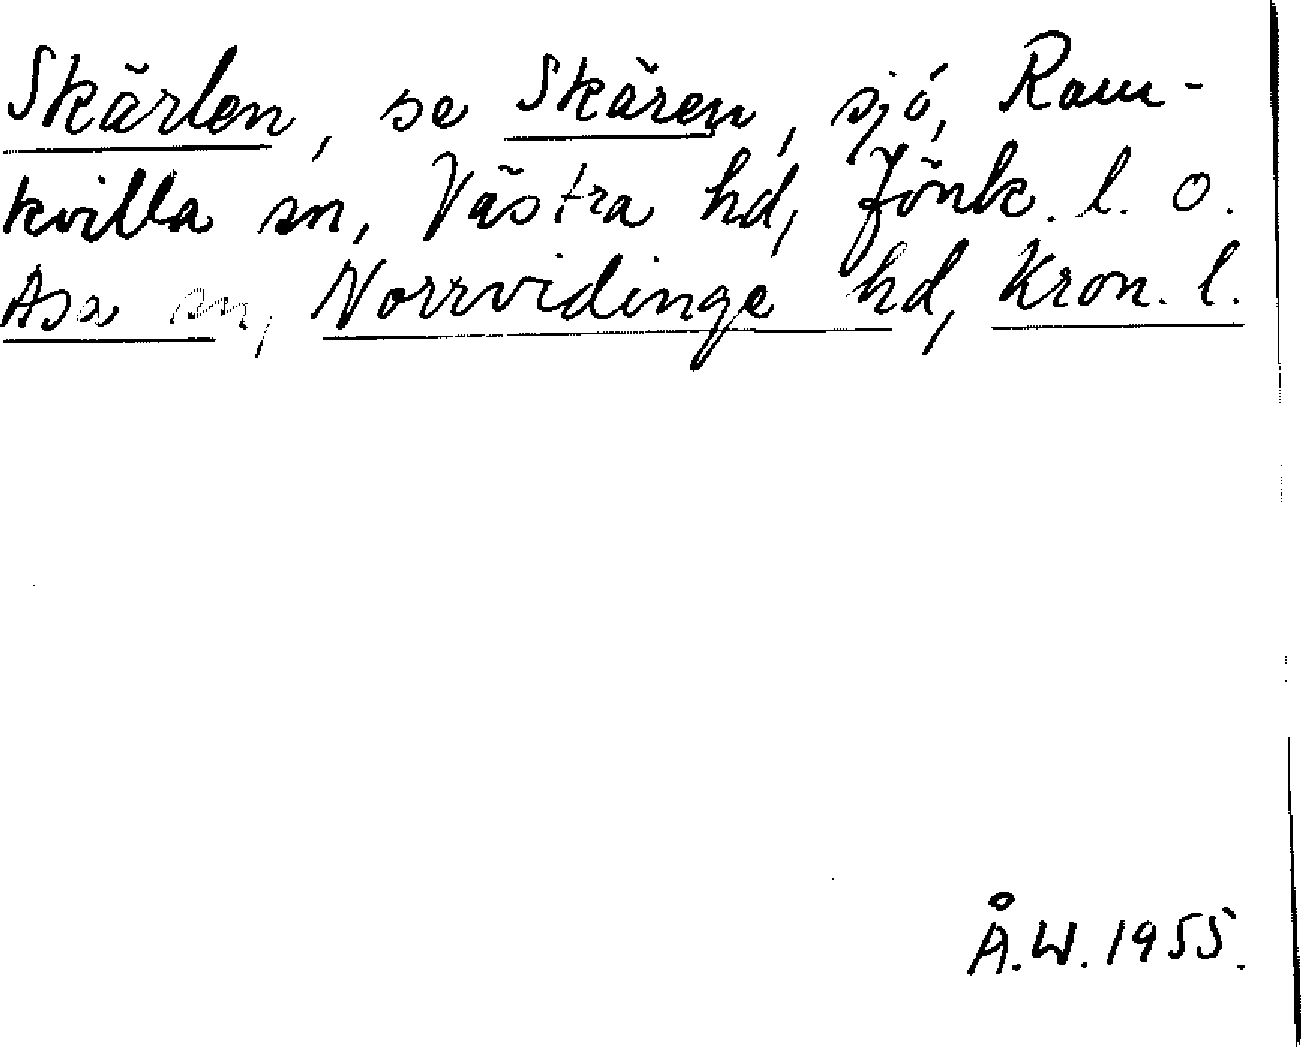 Skärlen, se Skären, sjö, Ram-
kvilla sn, Västra hd, Jönk. l. o.
Asa sn, Norrvidinge hd, Kron. l.
Å.W. 1955.